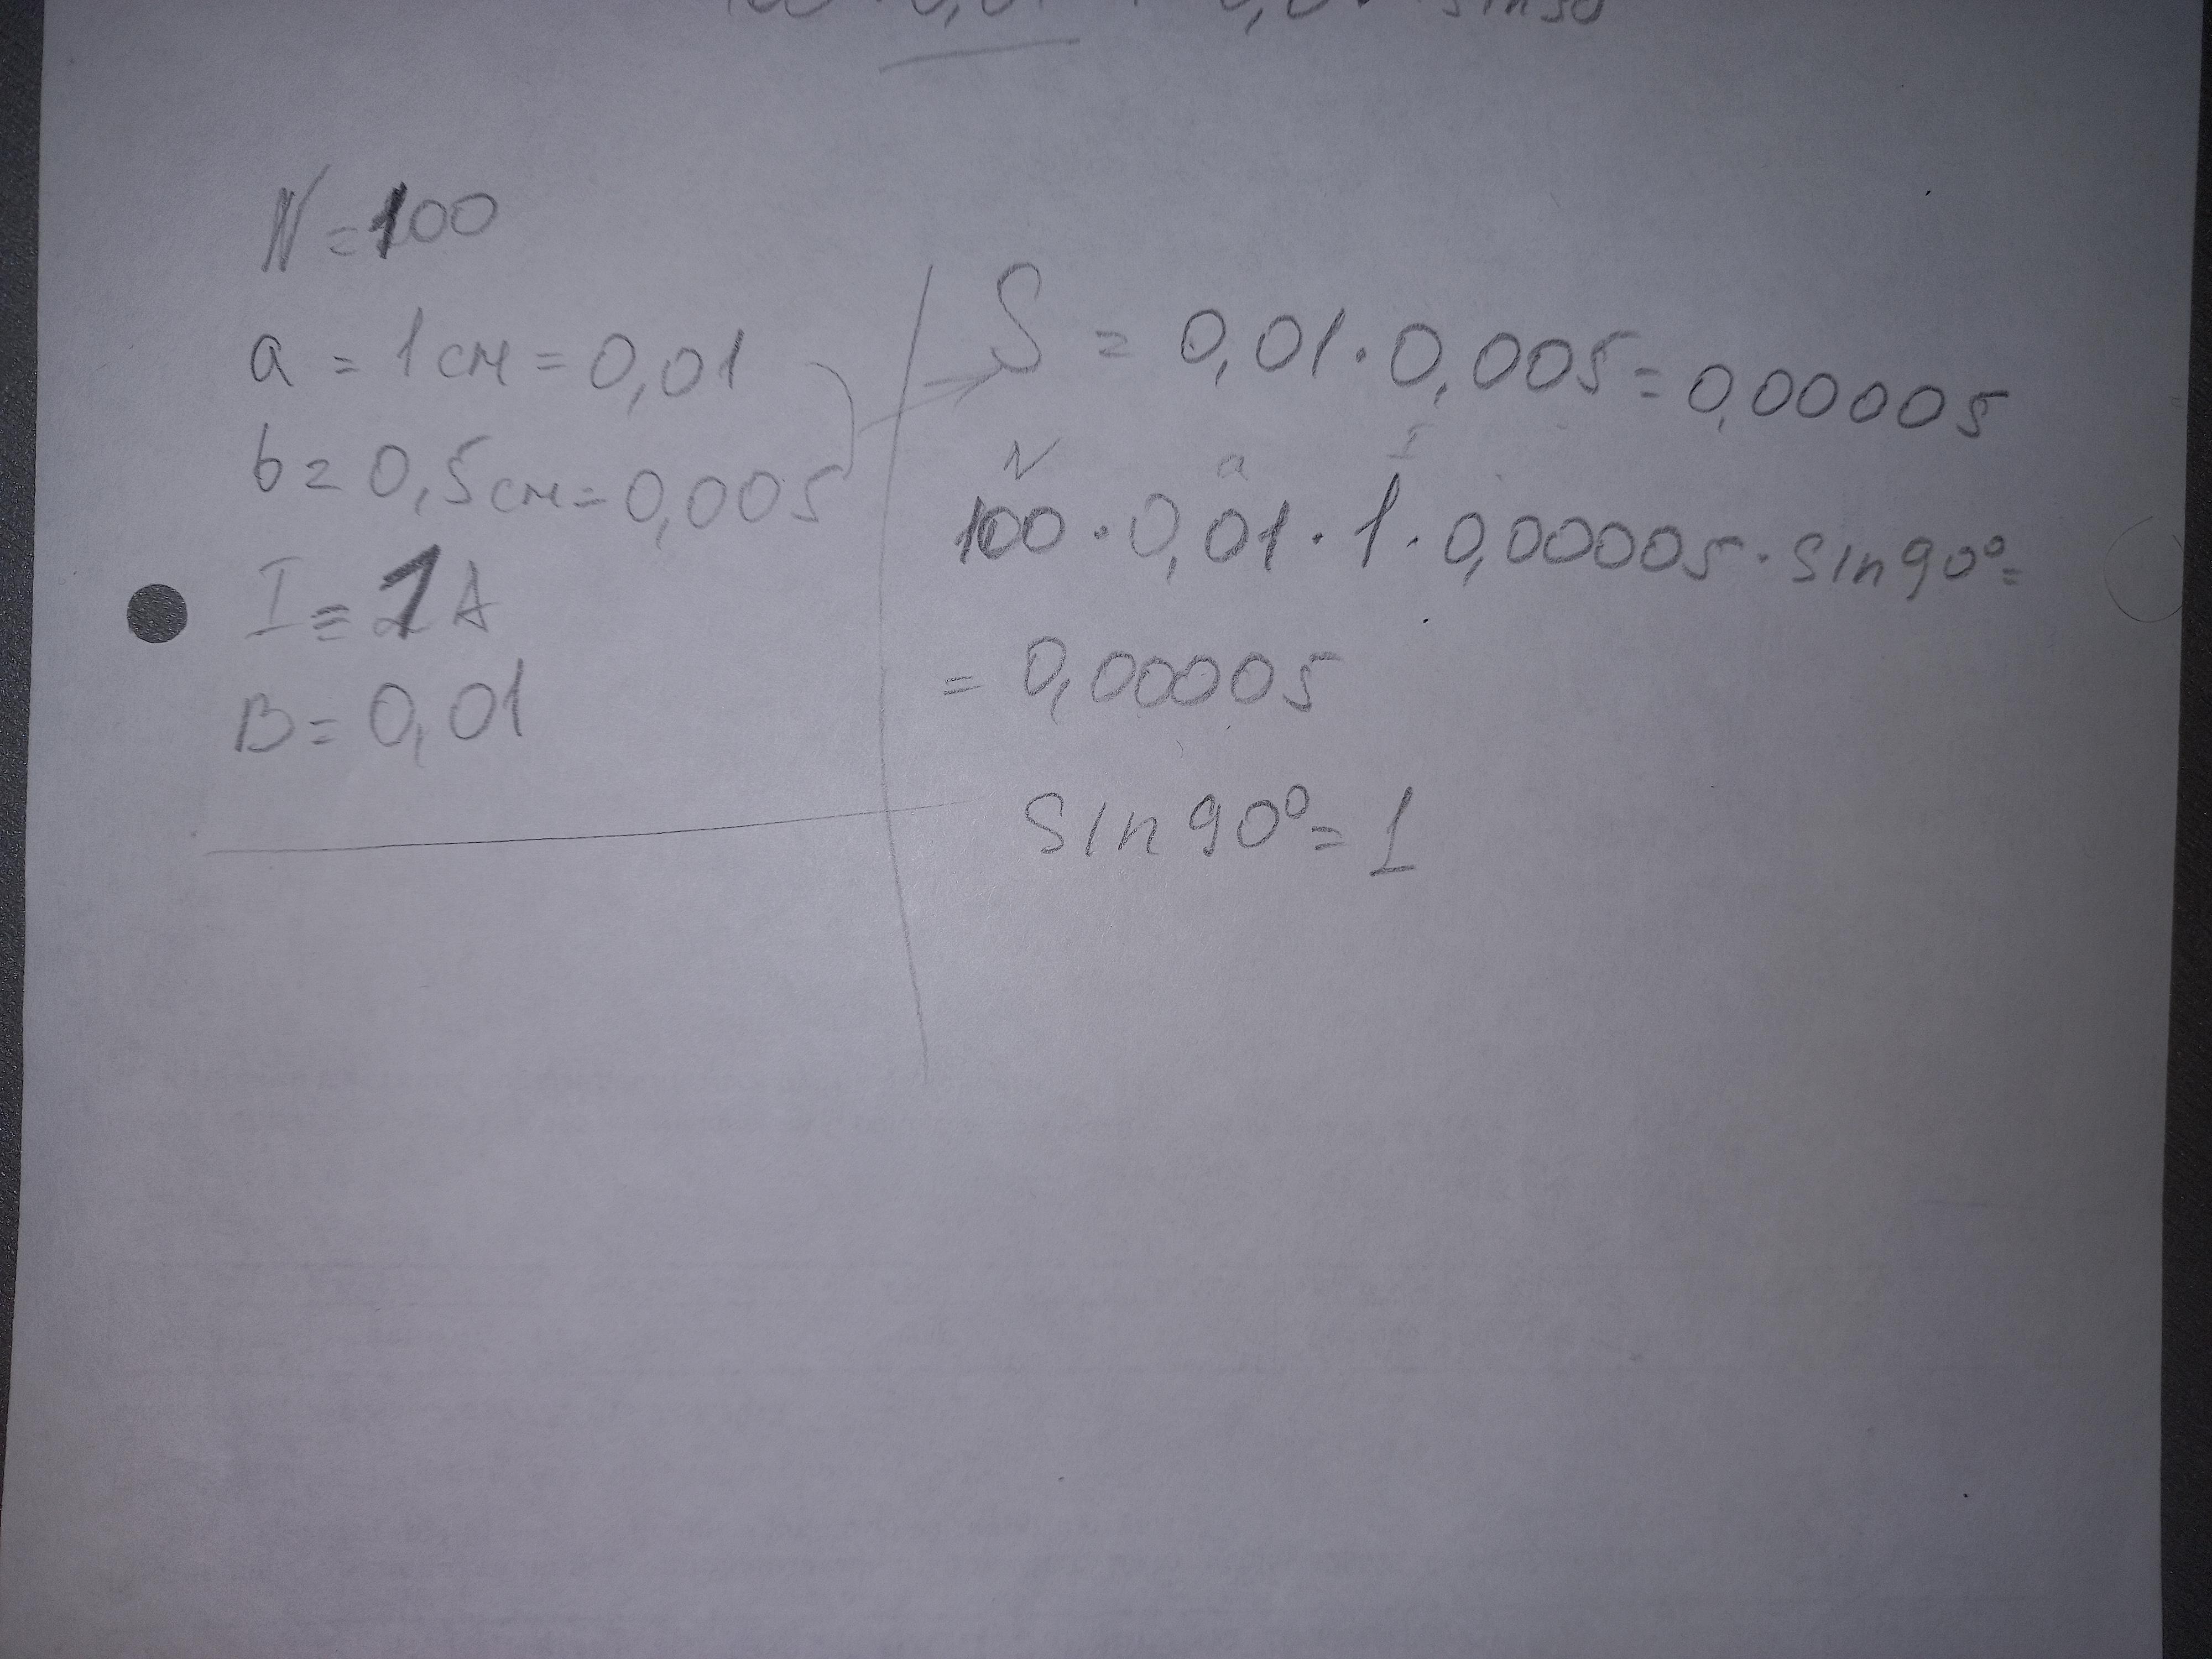 sin90
N=100
a = 1см=0,01
b= 0,5см=0,005
I = 1A
B= 0,01
S = 0,01·0,005=0,00005
N a I
100·0,01·1·0,00005·sin90°=
= 0,00005
sin90°=1